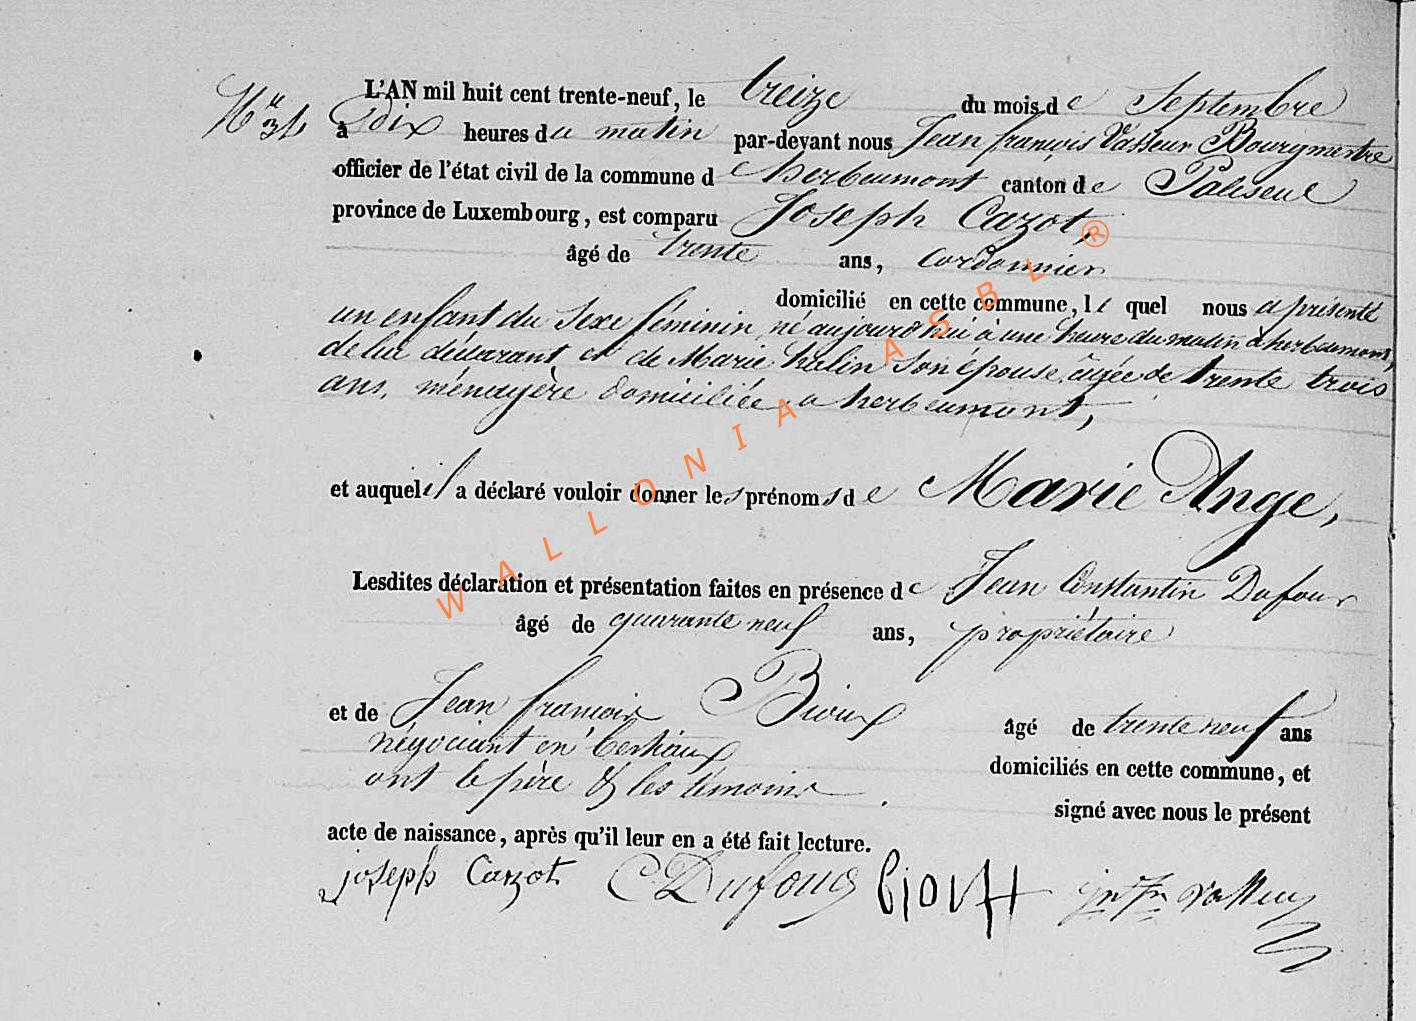 L'AN mil huit cent trente-neuf, le treize du mois de Septembre
N° 34 à Dix heures du matin par-devant nous Jean françois Vasseur Bourgmestre
officier de l'état civil de la commune de herbeumont canton de Paliseul
province de Luxembourg, est comparu Joseph Cazot,
âgé de trente ans, Cordonnier
domicilié en cette commune, le quel nous a présenté
un enfant du Sexe féminin, né aujourd'hui à une heure du matin à herbeumont,
de lui déclarant et de Marie halin Son épouse, âgée de trente trois
ans, ménagère domiciliée a herbeumont,
et auquel il a déclaré vouloir donner les prénoms de Marie Ange,
Lesdites déclaration et présentation faites en présence de Jean Constantin Dufour
âgé de quarante neuf ans, propriétaire
et de Jean françois Bioux âgé de trente neuf ans
négociant en bestiaux domiciliés en cette commune, et
ont le père & les témoins signé avec nous le présent
acte de naissance, après qu'il leur en a été fait lecture.
joseph Cazot C Dufour jn fn Vasseur
WALLONIA ASBL ®